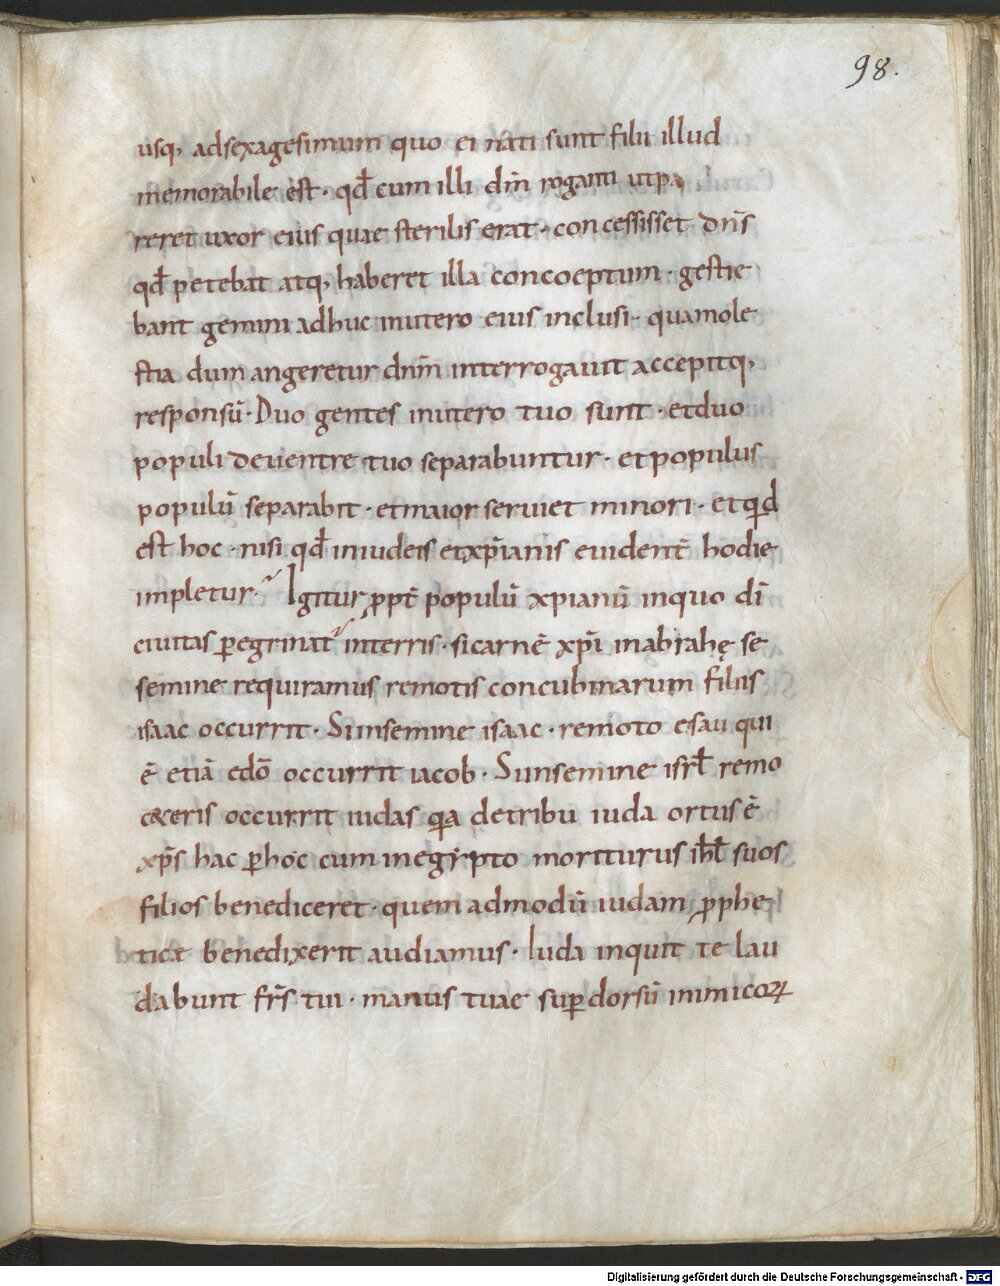 98.
usq; adsexagesimum quo ei nati sunt filii illud
memorabile est· qđ cum illi dm̄ roganti utpa
reret uxor eius quae sterilis erat· concessisset dn̄s
qđ petebat atq; haberet illa concoeptum· gestie
bant gemini adhuc inutero eius inclusi· quamole
stia dum angeretur dnm̄ interrogauit accepitq;
responsū· Duo gentes inutero tuo sunt· etduo
populi deuentre tuo separabuntur· etpopulus
populū separabit· etmaior seruiet minori· etqid
est hoc· nisi qđ iniudeis etxp̄ianis euident̄ hodie
impletur· Igitur ꝓpt̄ populū xpianū inquo dī
ciuitas ꝑegrinat̄ interris· sicarnē xp̄i inabrahę se
semine requiramus remotis concubinarum filiis
isaac occurrit· Sinsemine isaac· remoto esau qui
ē etiā edō occurrit iacob· Sinsemine isrł remo
ceteris occurrit iudas qa detribu iuda ortus ē
xp̄s hac ꝑhoc cum inegypto moriturus ihł suos
filios benediceret· quem admodū iudam ꝓphe
tice benedixerit audiamus· Iuda inquit te lau
dabunt fr̄s tui· manus tuae suꝑ dorsū inimicoꝝ
Digitalisierung gefördert durch die Deutsche Forschungsgemeinschaft - DFG